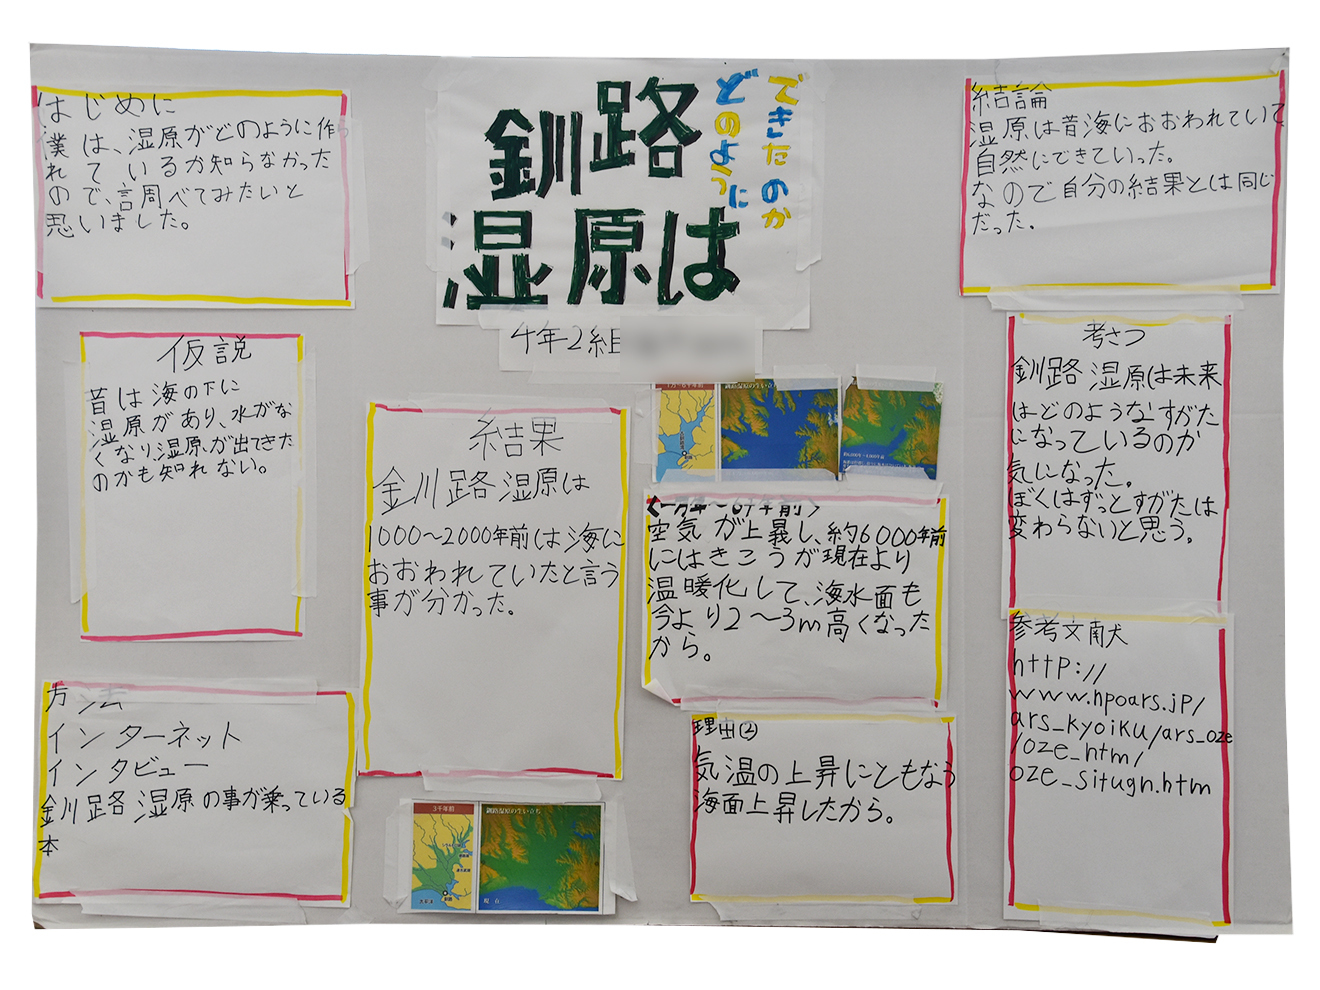 釧路
湿原は
どのように
できたのか
4年2組
はじめに
僕は、湿原がどのように作ら
れているか知らなかった
ので、調べてみたいと
思いました。
仮説
昔は海の下に
湿原があり、水がな
くなり湿原が出てきた
のかも知れない。
方法
インターネット
インタビュー
釧路湿原の事が乗っている
本
結果
釧路湿原は
1000〜2000年前は海に
おおわれていたと言う
事が分かった。
3千年前
釧路湿原の生い立ち
現在
釧路湿原の生い立ち
<一万年〜6千年前>
空気が上義し、約6000年前
にはきこうが現在より
温暖化して、海水面も
今より2〜3m高くなった
から。
理由②
気温の上昇にともなう
海面上昇したから。
結論
湿原は昔海におおわれていて
自然にできていった。
なので自分の結果とは同じ
だった.
考さつ
釧路湿原は未来
はどのようなすがた
になっているのか
気になった。
ぼくはずっとすがたは
変わらないと思う。
参考文献
http://
www.hpoars.jp/
ars_kyoiku/ars_oze
/oze_htm/
oze_situgn.htm